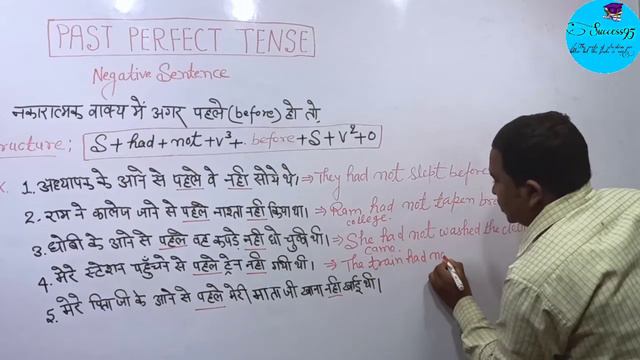 PAST PERFECT TENSE
Success95
Negative Sentence
नकारात्मक वाक्य में अगर पहले (before) हो तो,
ructure; S + had + not + V³ + before + S + V² + O
1. अध्यापक के आने से पहले वे नहीं सोये थे। ⇒ They had not slept before
2. राम ने कालेज जाने से पहले नाश्ता नहीं किया था। ⇒ Ram had not tapen
college.
3. धोबी के आने से पहले वह कपड़े नहीं धो चुकी थी। ⇒ She had not washed the
came.
4. मेरे स्टेशन पहुँचने से पहले ट्रेन नहीं गयी थी। ⇒ The train had n
5. मेरे पिता जी के आने से पहले मेरी माता जी खाना नहीं खाई थी।